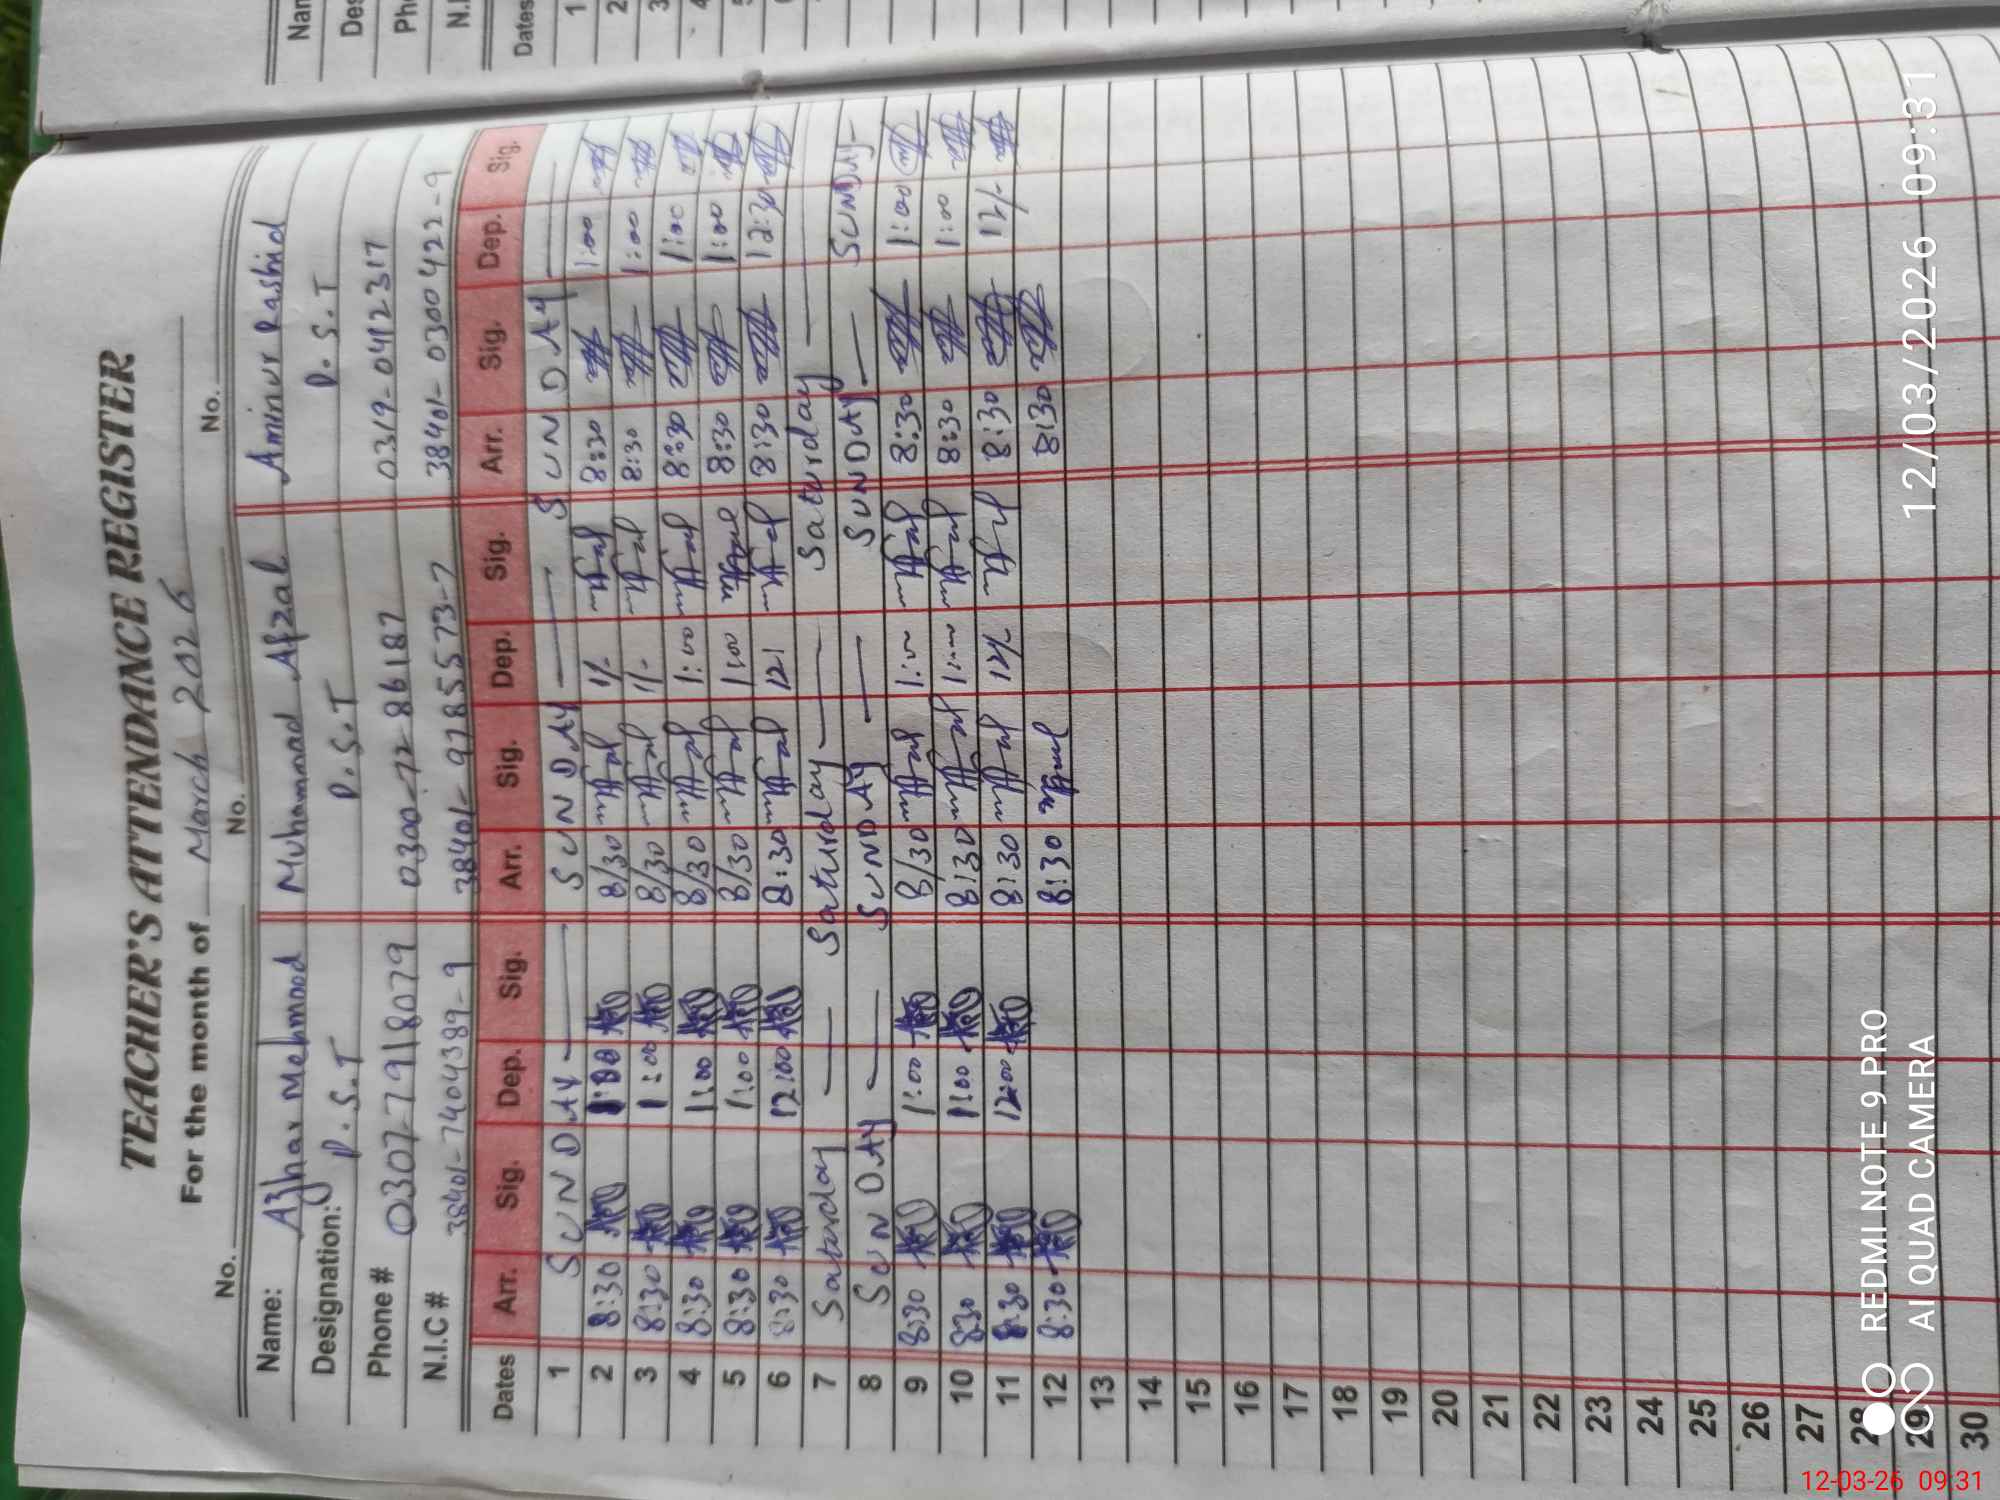 TEACHER'S ATTENDANCE REGISTER
For the month of March 2026
No. No. No.
Name: Azhar Mehmood Muhammad Afzal Aminur Rashid
Designation: P.S.T P.S.T P.S.T
Phone # 0307-7918079 0300-7286187 0319-0412317
N.I.C # 38401-7404389-9 38401-9785573-7 38401-0300422-9
Dates Arr. Sig. Dep. Sig. Arr. Sig. Dep. Sig. Arr. Sig. Dep. Sig.
1 SUNDAY SUNDAY SUNDAY
2 8:30 1:00 8/30 1/- 8:30 1:00
3 8:30 1:00 8/30 1/- 8:30 1:00
4 8:30 1:00 8/30 1:00 8:30 1:00
5 8:30 1:00 8/30 1:00 8:30 1:00
6 8:30 12:00 8:30 12! 8:30 12:30
7 Saturday Saturday Saturday
8 SUNDAY SUNDAY SUNDAY SUNDAY
9 8:30 1:00 8/30 1:00 8:30 1:00
10 8:30 1:00 8:30 1:00 8:30 1:00
11 8:30 12:00 8:30 12/- 8:30 12/-
12 8:30 8:30 8:30
13
14
15
16
17
18
19
20
21
22
23
24
25
26
27
28
29
30
Nam
Des
Pho
N.I
Dates
1
2
3
4
5
REDMI NOTE 9 PRO
AI QUAD CAMERA
12/03/2026 09:31
12-03-26 09:31